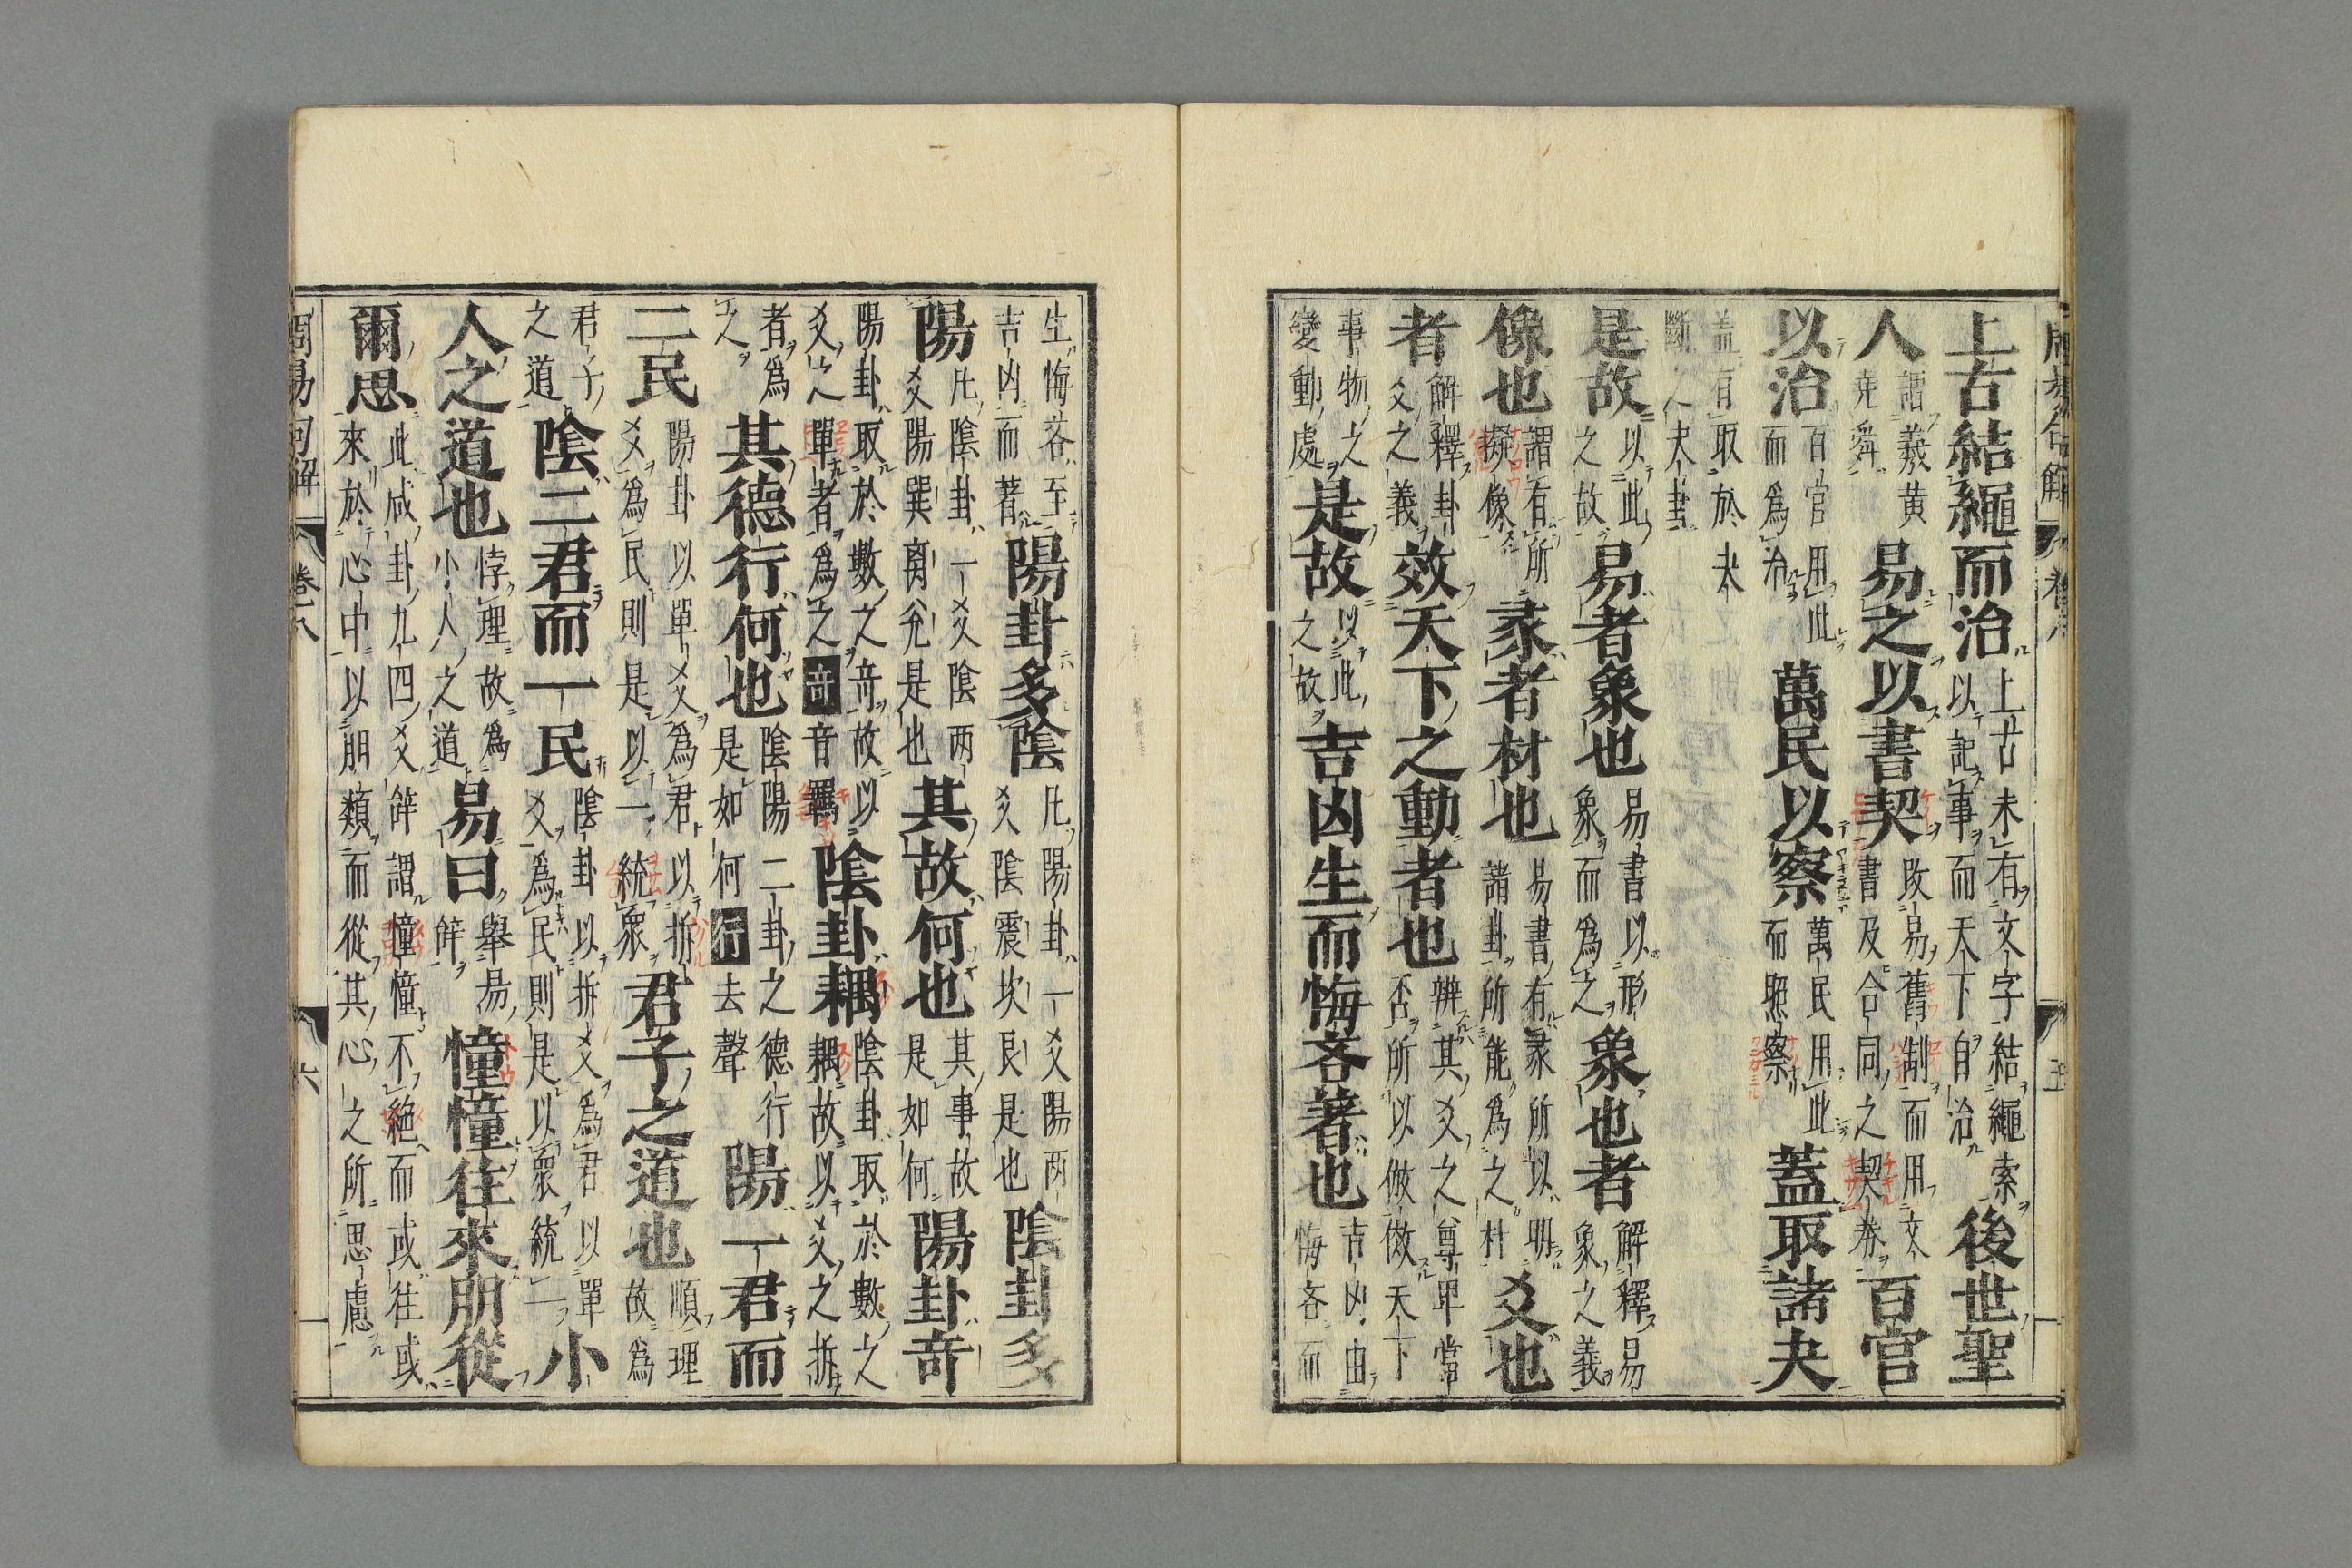 周易句解 卷八 五
上古結繩而治上古未有文字結繩索以記事而天下自治後世聖
人謂羲黄堯舜易之以書契改易舊制而用文書及合同之契券百官
以治百官用此而為治萬民以察萬民用此而照察蓋取諸夬
盖有取於夬斷
是故以此之故易者象也易書以形象而為之象也者解釋易象之義
像也謂有所擬像彖者材也易書有彖所以明諸卦所能為之材爻也
者解釋卦爻之義效天下之動者也辨其爻之尊卑當否所以倣傚天下
事物之變動處是故以此之故吉凶生而悔吝著也吉凶由悔吝而
生悔吝至吉凶而著陽卦多陰凡陽卦一爻陽两爻陰震坎艮是也陰卦多
陽凡陰卦一爻陰两爻陽巽离兌是也其故何也其事故是如何陽卦奇
陽卦取於數之竒故以爻之單者為之竒音羈陰卦耦陰卦取於數之耦故以爻之拆
者為之其德行何也陰陽二卦之德行是如何行去聲陽一君而
二民陽卦以單爻為君以拆爻為民則是以一統衆君子之道也順理故為
君子之道陰二君而一民陰卦以拆爻為君以單爻為民則是以衆統一小
人之道也悖理故為小人之道易曰舉易辤憧憧往來朋從
爾思此咸卦九四爻辤謂憧憧不絶而或往或來於心中以朋類而從其心之所思慮
周易句解 卷八 六